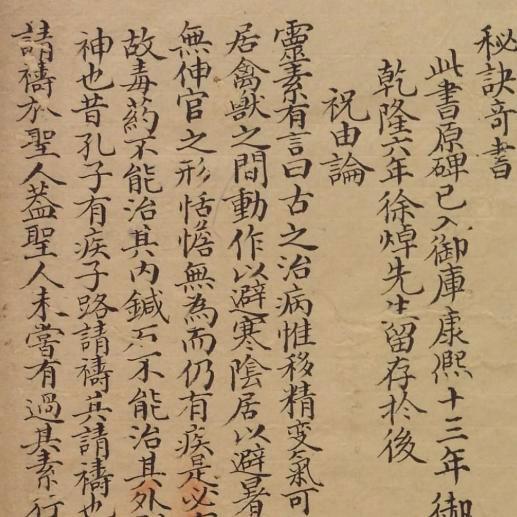 秘訣奇書
此書原碑已入御庫康熙十三年御
乾隆六年徐焯先生留存扵後
祝由論
靈素有言曰古之治病惟移精变氣可
居禽獸之間動作以避寒陰居以避暑
無伸官之形恬憺無為而仍有疾是必
故毒药不能治其内鍼石不能治其外
神也昔孔子有疾子路請禱其請禱也
請禱於聖人蓋聖人未嘗有過其素行